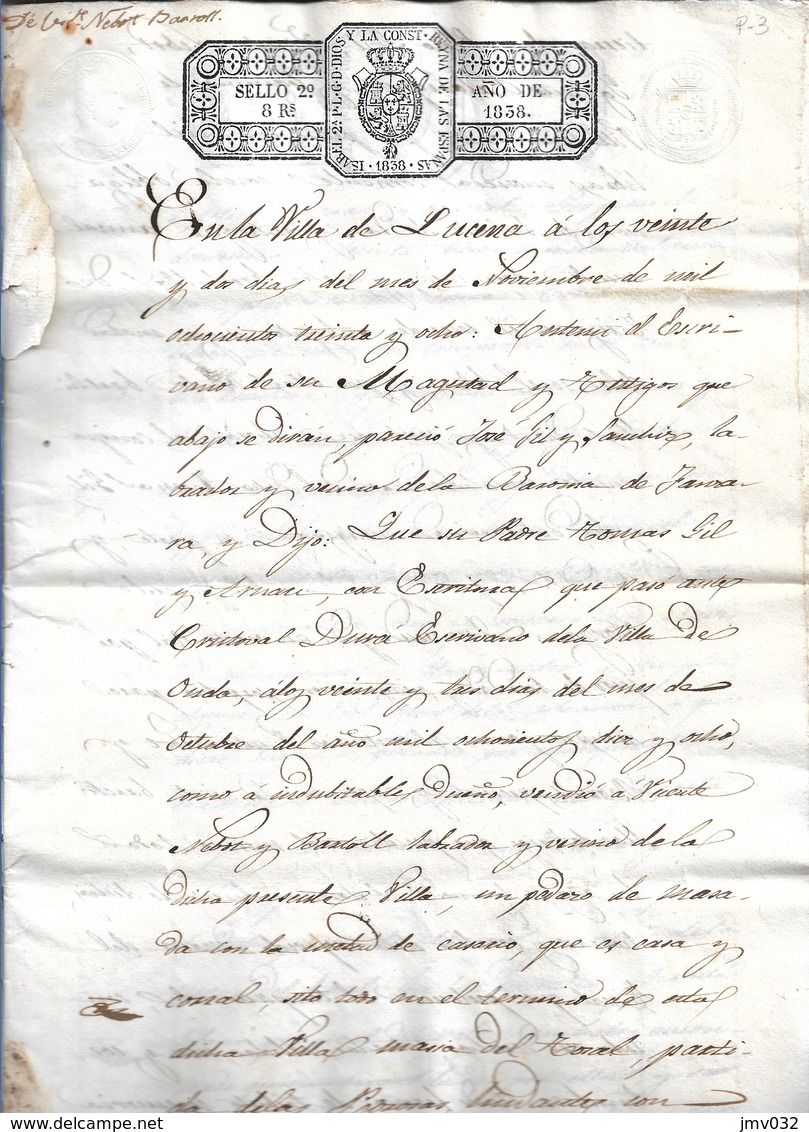 De Vic.te Nebot Bartoll.
P-3
SELLO 2º
8 Rs
ISABEL 2ª P.L.G.D.DIOS Y LA CONST. REYNA DE LAS ESPAÑAS
·1838·
AÑO DE
1838.
En la Villa de Lucena á los veinte
y dos dias del mes de Noviembre de mil
ochocientos treinta y ocho: Antemi el Escri-
vano de su Magestad y testigos que
abajo se dirán, pareció José Gil y Sanchis, la-
brador y vecino de la Baronia de Fanza-
ra, y Dijo: Que su Padre Tomas Gil
y , con Escritura que pasó ante
Cristoval Durá Escrivano dela Villa de
Onda, álos veinte y tres dias del mes de
Octubre del año mil ochocientos diez y ocho,
como á indubitable dueño, vendió á Vicente
Nebot y Bartoll labrador y vecino de la
dicha presente Villa, un pedazo de masa-
da con la mitad de caserio, que es casa y
corral, sito todo en el termino de esta
dicha Villa masia del Toral, parti-
da delas lindantes con
jmv032